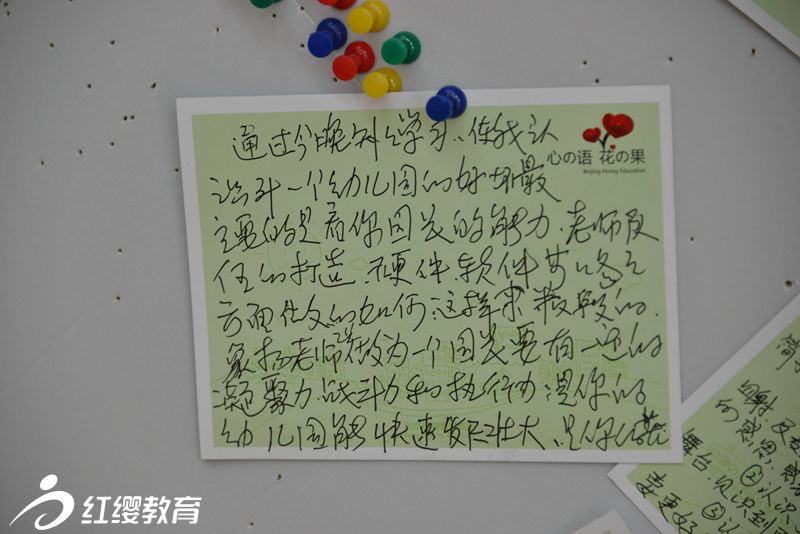 心の语 花の果
Beijing Hoing Education
通过今晚的学习,使我认
识到一个幼儿园的好坏最
主要的是看你园长的能力、老师队
伍的打造、硬件、软件
方面做的如何,这样来
老师做为一个园长要有一定的
凝聚力、战斗力和执行力,是你的
幼儿园能快速发展壮大,是你
红缨教育
感恩
②认识
舞台
识到
③认
要更好